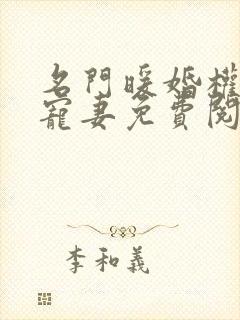 名門暖婚權
寵妻免費閱
李和義